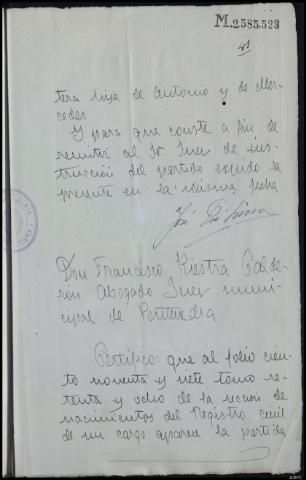 M.2585.523
41
tera hija de Antonio y de Mer-
cedes
Y para que conste a fin de
remitir al Sr. Juez de ins-
trucción del partido expido la
presente en la misma fecha
José
Don Francisco Riestra Calde-
rón Abogado Juez muni-
cipal de Pontevedra
Certifico: que al folio cien-
to noventa y siete tomo se-
tenta y ocho de la sección de
nacimientos del Registro civil
de mi cargo aparece la partida